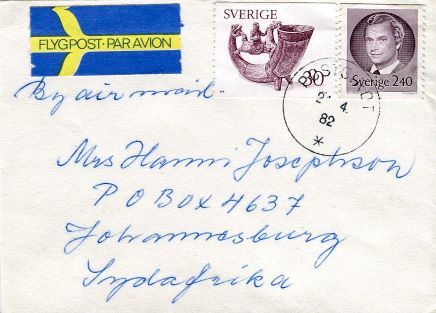 FLYGPOST·PAR AVION
SVERIGE
50
Sverige 2.40
2. 4.
82
By air mail
Mrs Hanni Josephson
P O Box 4637
Johannesburg
Sydafrika